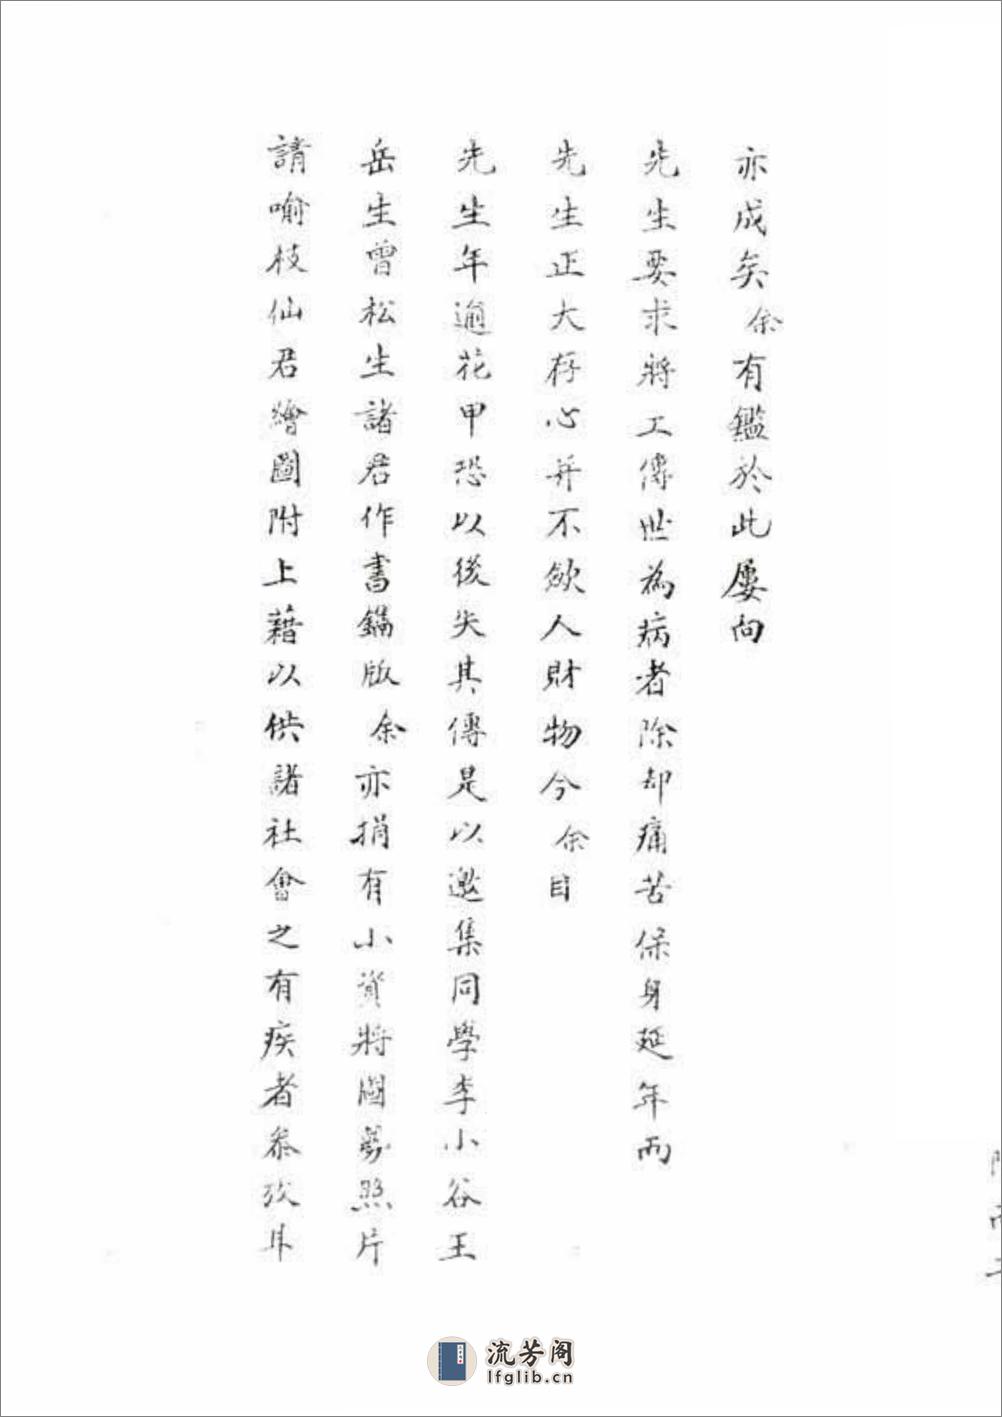 亦成矣余有鑑於此屢向
先生要求將工傳世為病者除却痛苦保身延年而
先生正大存心并不歛人財物今余目
先生年逾花甲恐以後失其傳是以邀集同學李小谷王
岳生曾松生諸君作書鐫版余亦捐有小資將圖勢照片
請喻枝仙君繪圖附上藉以供諸社會之有疾者叅攷耳
流芳阁
lfglib.cn